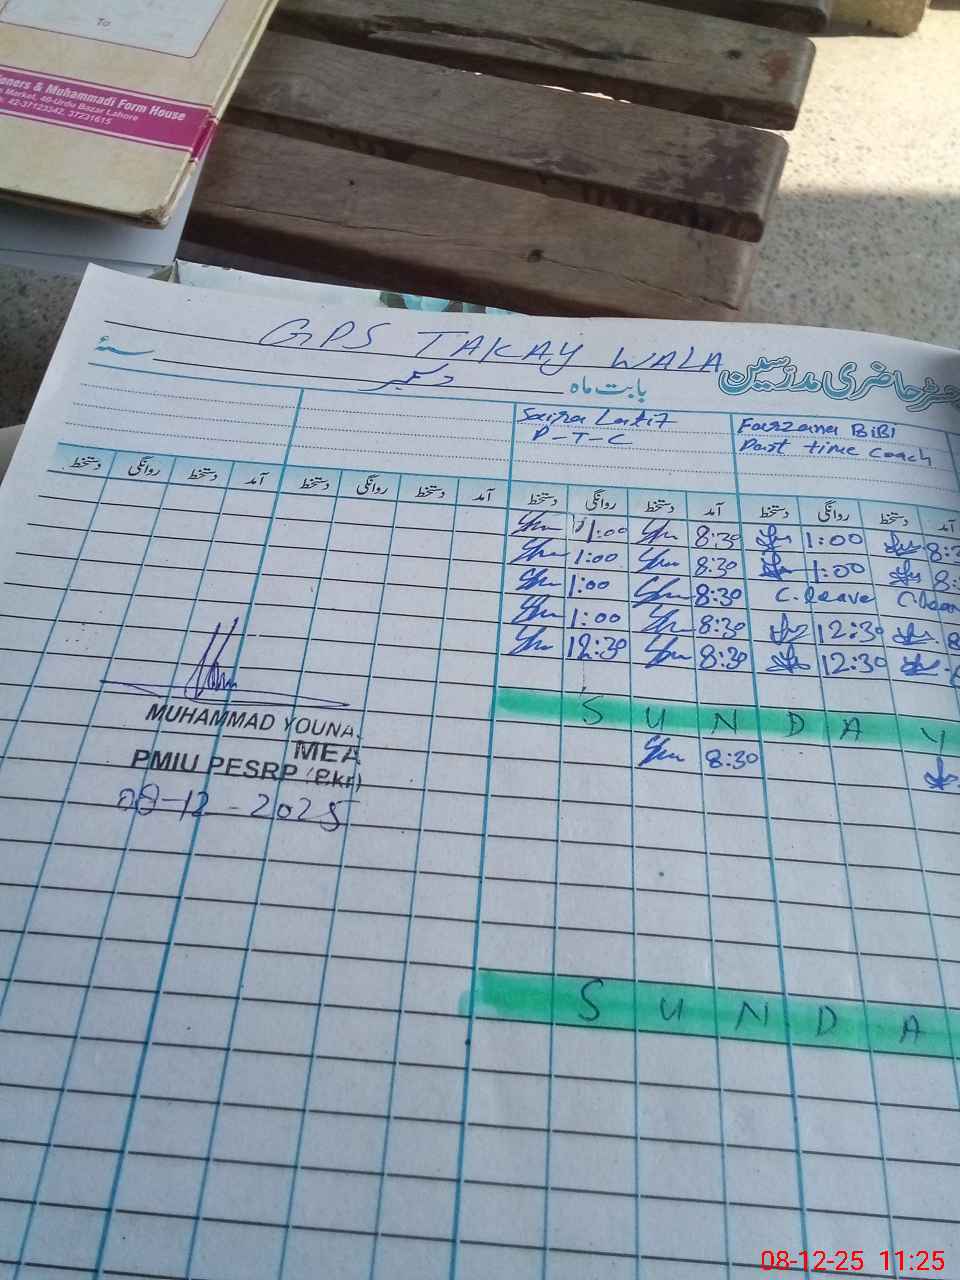 To
oners & Muhammadi Form House
Market, 46-Urdu Bazar Lahore
42-37123342, 37231615
GPS TAKAY WALA
حاضری مدرسین
بابت ماہ دسمبر
سنہ
Saira Latif
P-T-C
Farzana BiBi
Part time Coach
آمد دستخط روانگی دستخط آمد دستخط روانگی دستخط آمد دستخط روانگی دستخط
1:00 8:30 1:00 8:3
1:00 8:30 1:00 8:
1:00 8:30 C.leave C.lea
1:00 8:30 12:30 8
12:30 8:30 12:30
S U N D A Y
8:30
MUHAMMAD YOUNA
MEA
PMIU PESRP (Bkr)
08-12-2025
S U N D A
08-12-25 11:25